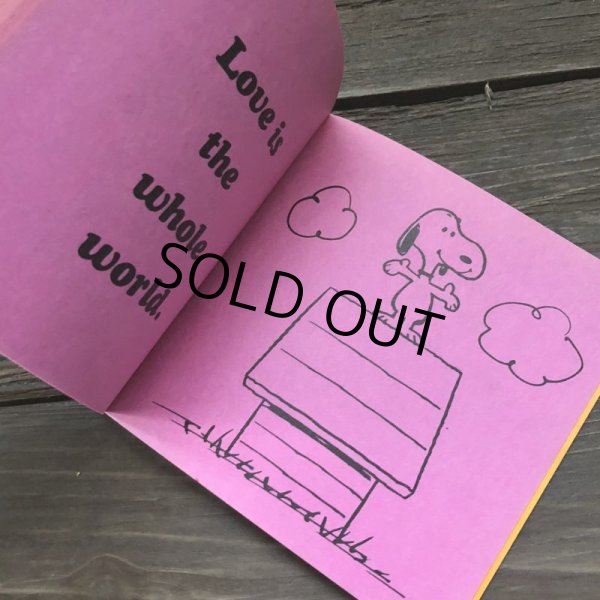 Love is
the
whole
world.
SOLD OUT